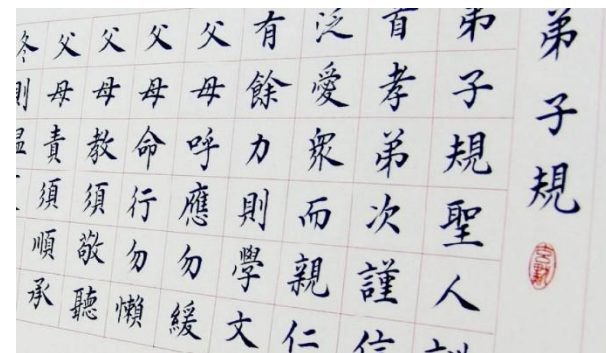 弟子規
弟子規聖人訓
首孝弟次謹信
泛愛眾而親仁
有餘力則學文
父母呼應勿緩
父母命行勿懶
父母教須敬聽
父母責須順承
冬則溫